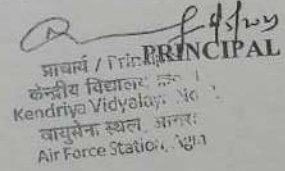 PRINCIPAL
प्राचार्य /
केन्द्रीय विद्यालय
Kendriya Vidyalaya No
वायुसेना स्थल, आगरा
Air Force Station, Agra